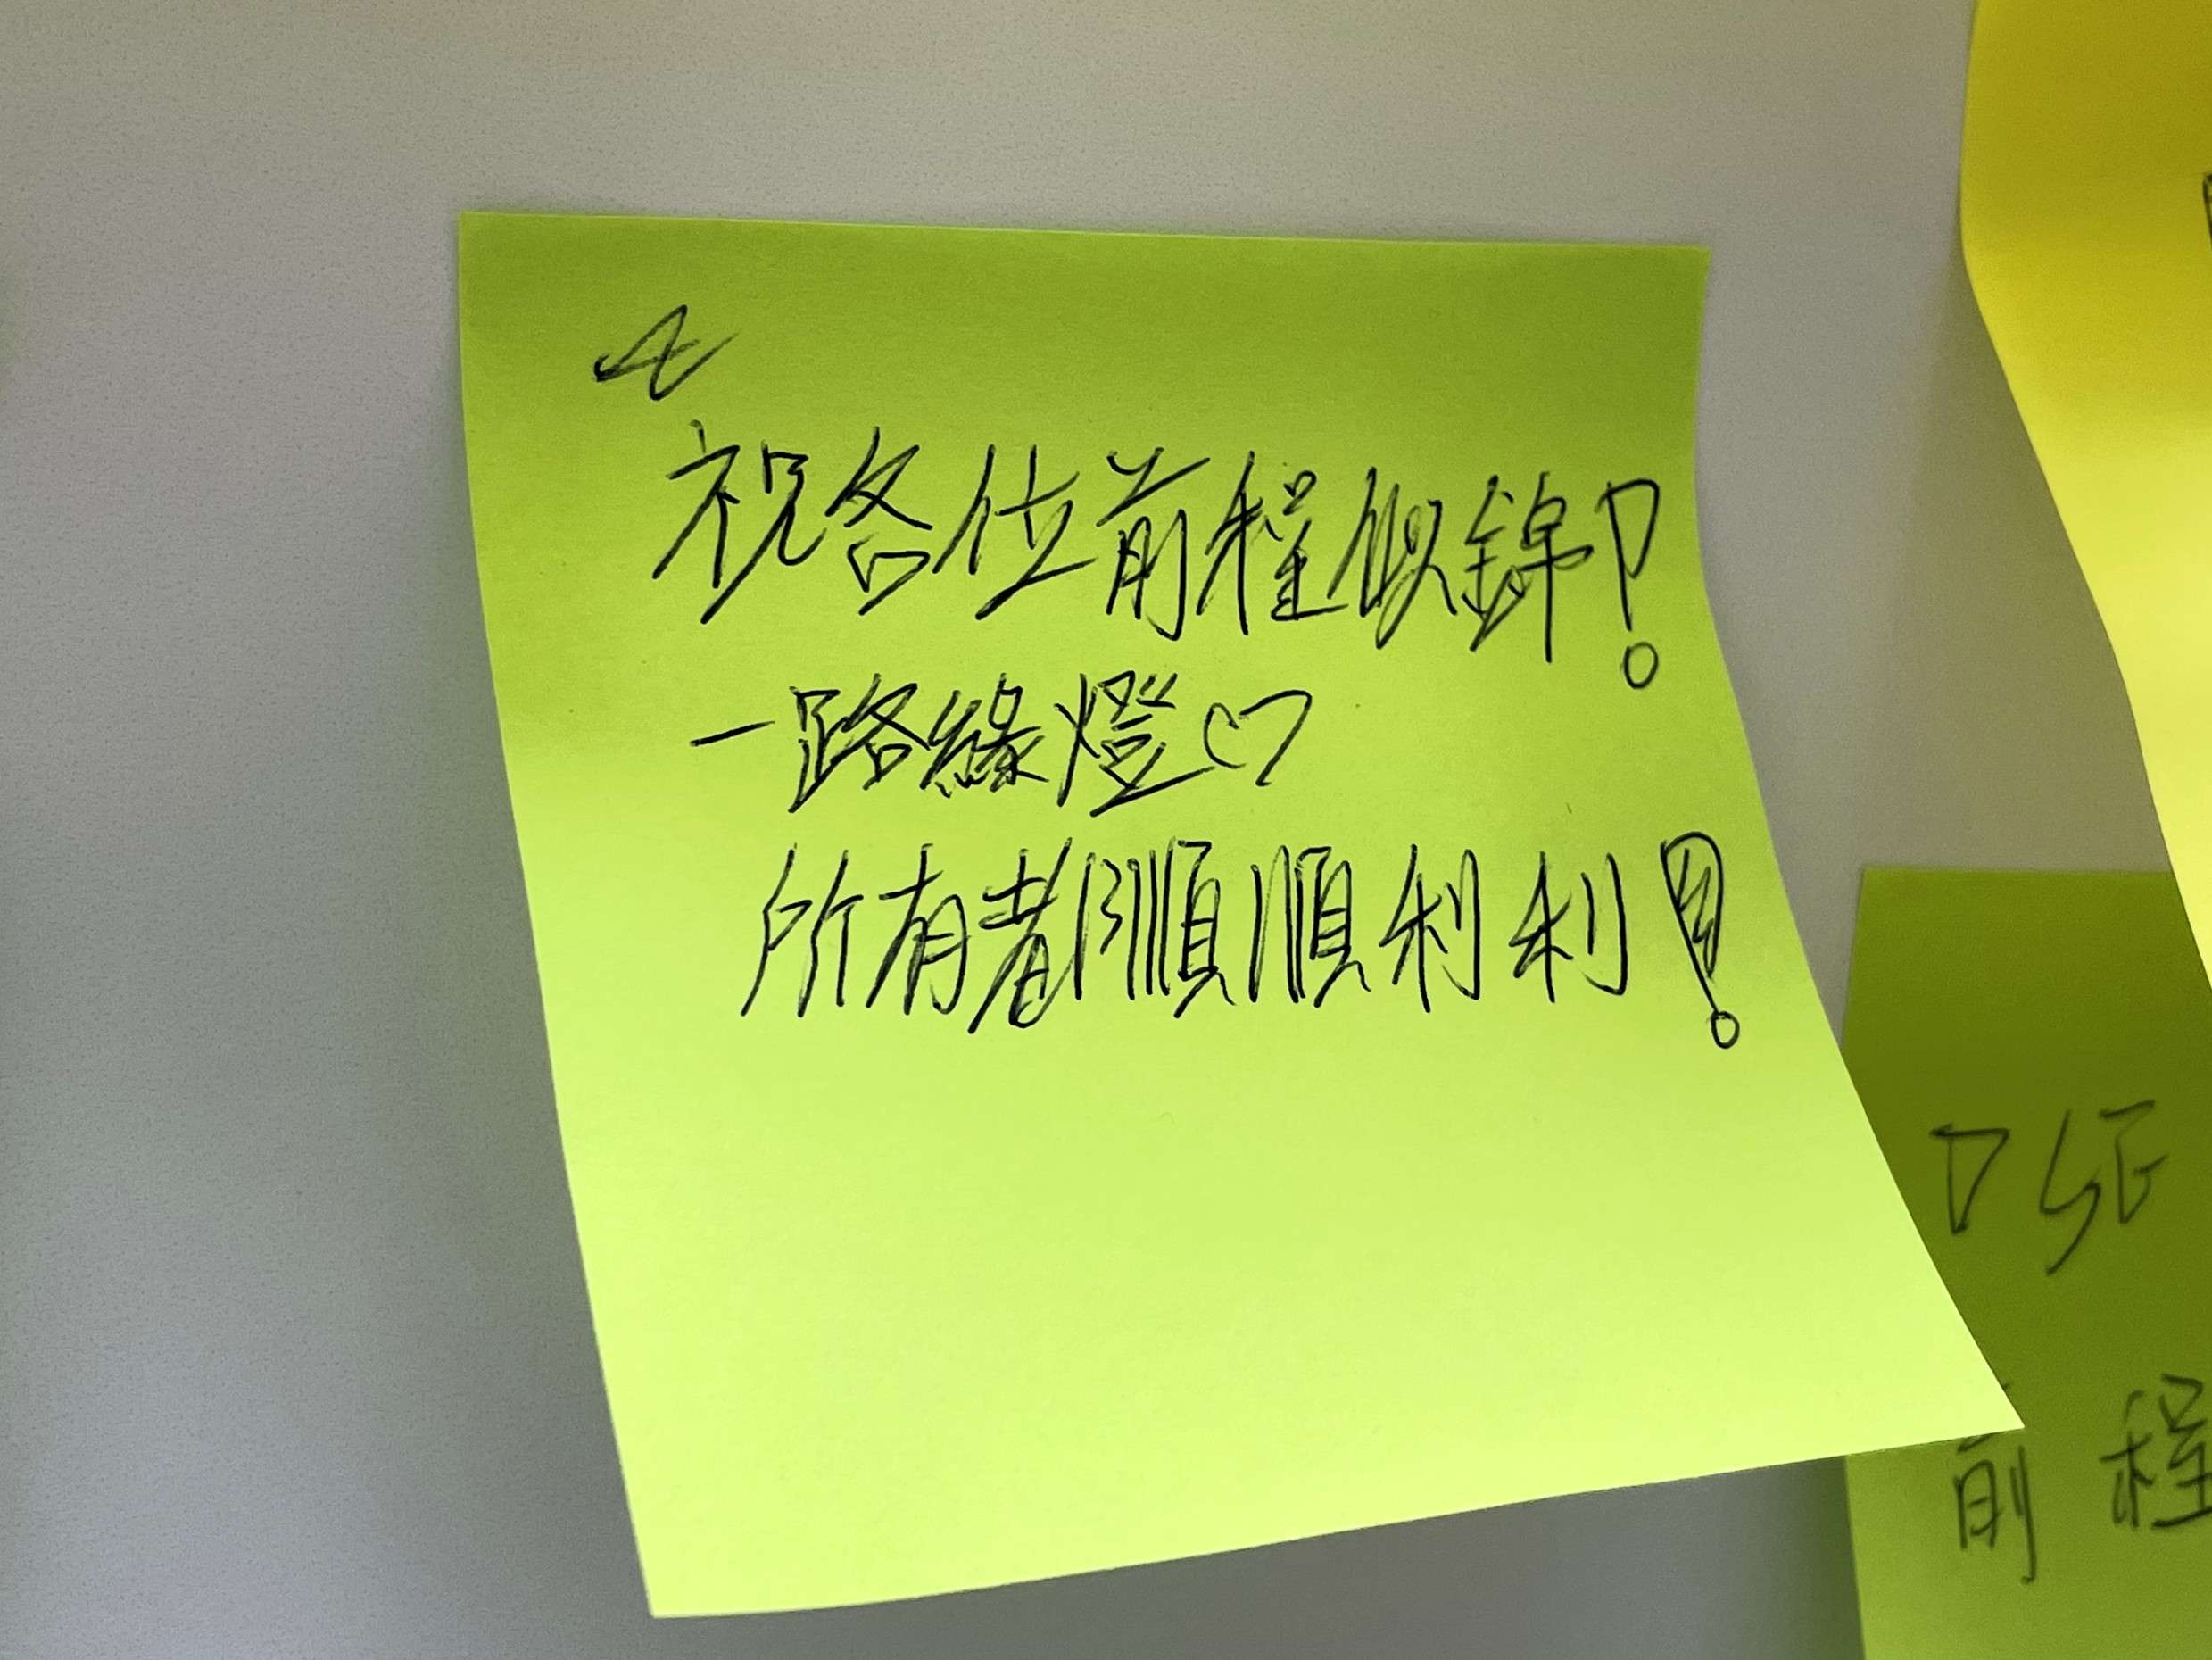 祝各位前程似錦!
一路緣燈♡
所有都順順利利!
DSE
前程